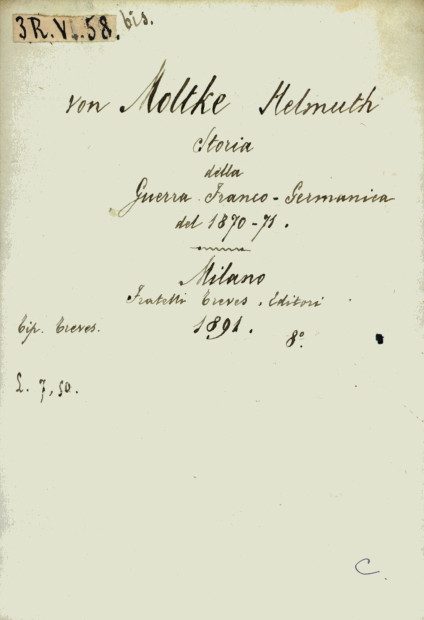 3R.VI.58. bis.
von Moltke Helmuth
Storia
della
Guerra Franco-Germanica
del 1870-71.
Milano
Fratelli Treves, Editori
Tip. Treves. 1891. 8º
L. 7,50.
C